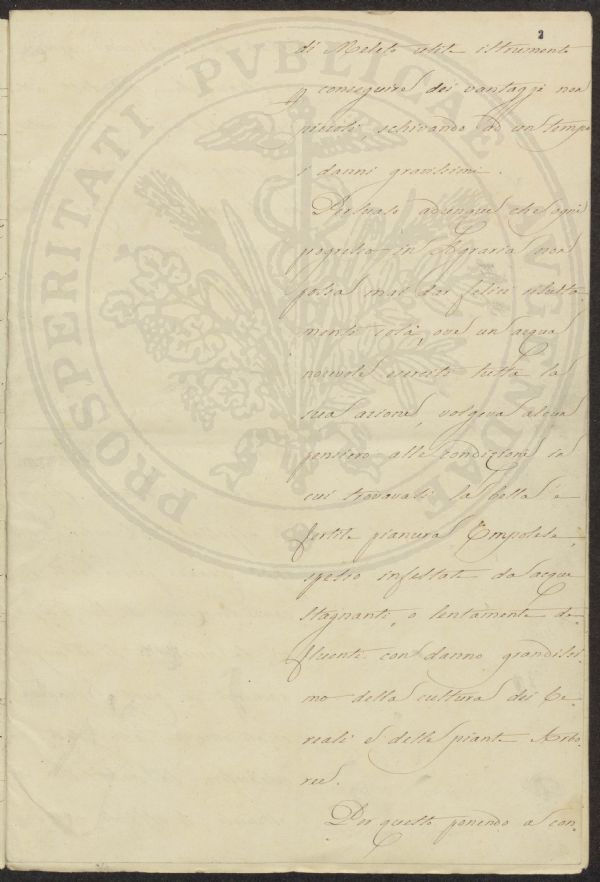 2
di Meleto utile istrumento
p conseguire dei vantaggi non
piccoli schivando ad un tempo
i danni gravissimi.
Persuaso adunque che ogni
progresso in Agraria non
possa mai dar felici risulta-
menti colà, ove un acqua
nocevole esercita tutta la
sua azione, volgeva alcun
pensiero alle condizioni in
cui trovavasi la bella e
fertile pianura Empolese,
spesso infestata da acque
stagnanti, o lentamente de-
fluenti con danno grandissi-
mo della cultura dei Ce-
reali e delle piante Arbo-
ree.
Per questo ponendo a con-
PROSPERITATI PVBLICAE AVGENDAE